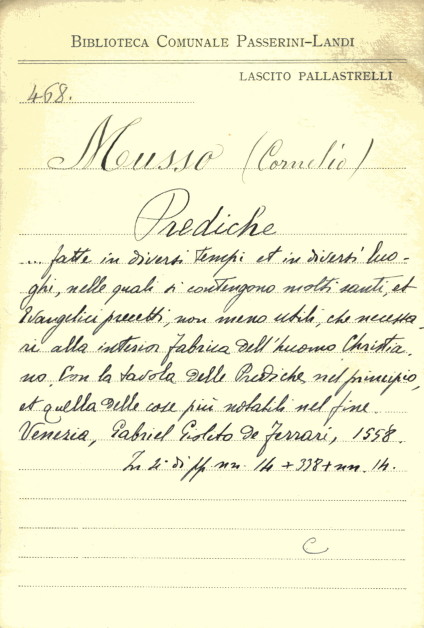 BIBLIOTECA COMUNALE PASSERINI-LANDI
LASCITO PALLASTRELLI
468.
Musso (Cornelio)
Prediche
... fatte in diversi tempi et in diversi luo-
ghi, nelle quali si contengono molti santi, et
Evangelici precetti, non meno utili, che necessa-
ri alla interior fabrica dell'huomo Christia.
no. Con la tavola delle Prediche nel principio,
et quella delle cose più notabili nel fine.
Venezia, Gabriel Gioleto de Ferrari, 1558.
In 4° di pp nn. 14 + 338 + nn. 14.
C